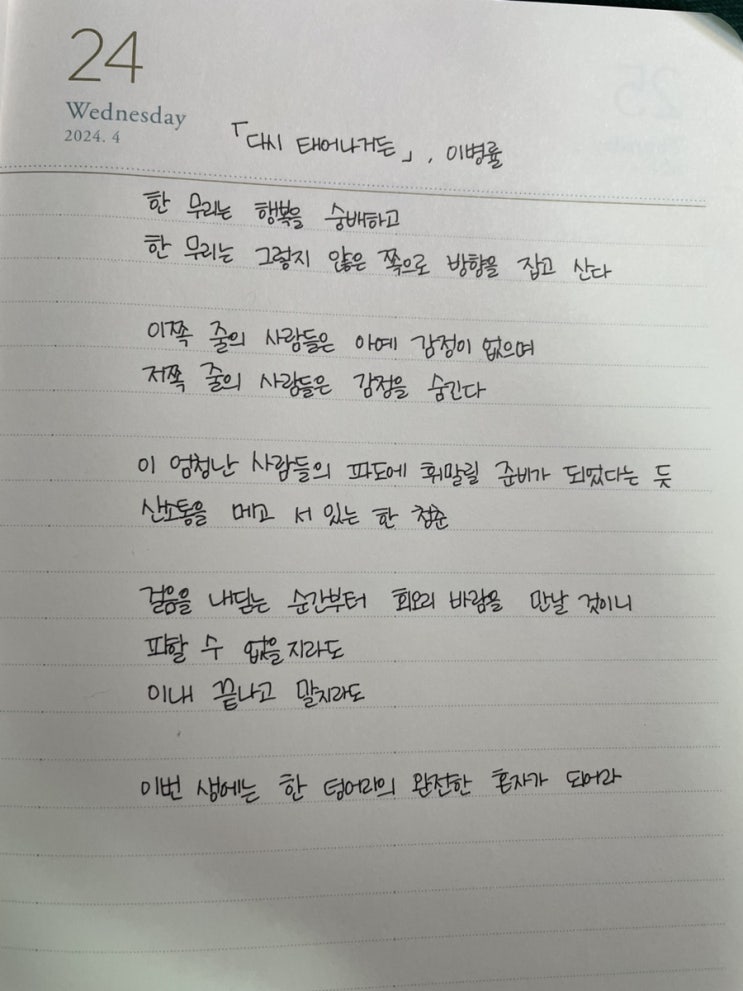 24
Wednesday
2024. 4
「다시 태어나거든」, 이병률
한 무리는 행복을 숭배하고
한 무리는 그렇지 않은 쪽으로 방향을 잡고 산다
이쪽 줄의 사람들은 아예 감정이 없으며
저쪽 줄의 사람들은 감정을 숨긴다
이 엄청난 사람들의 파도에 휘말릴 준비가 되었다는 듯
산소통을 메고 서 있는 한 청춘
걸음을 내딛는 순간부터 회오리 바람을 만날 것이니
피할 수 없을지라도
이내 끝나고 말지라도
이번 생에는 한 덩어리의 완전한 혼자가 되어라